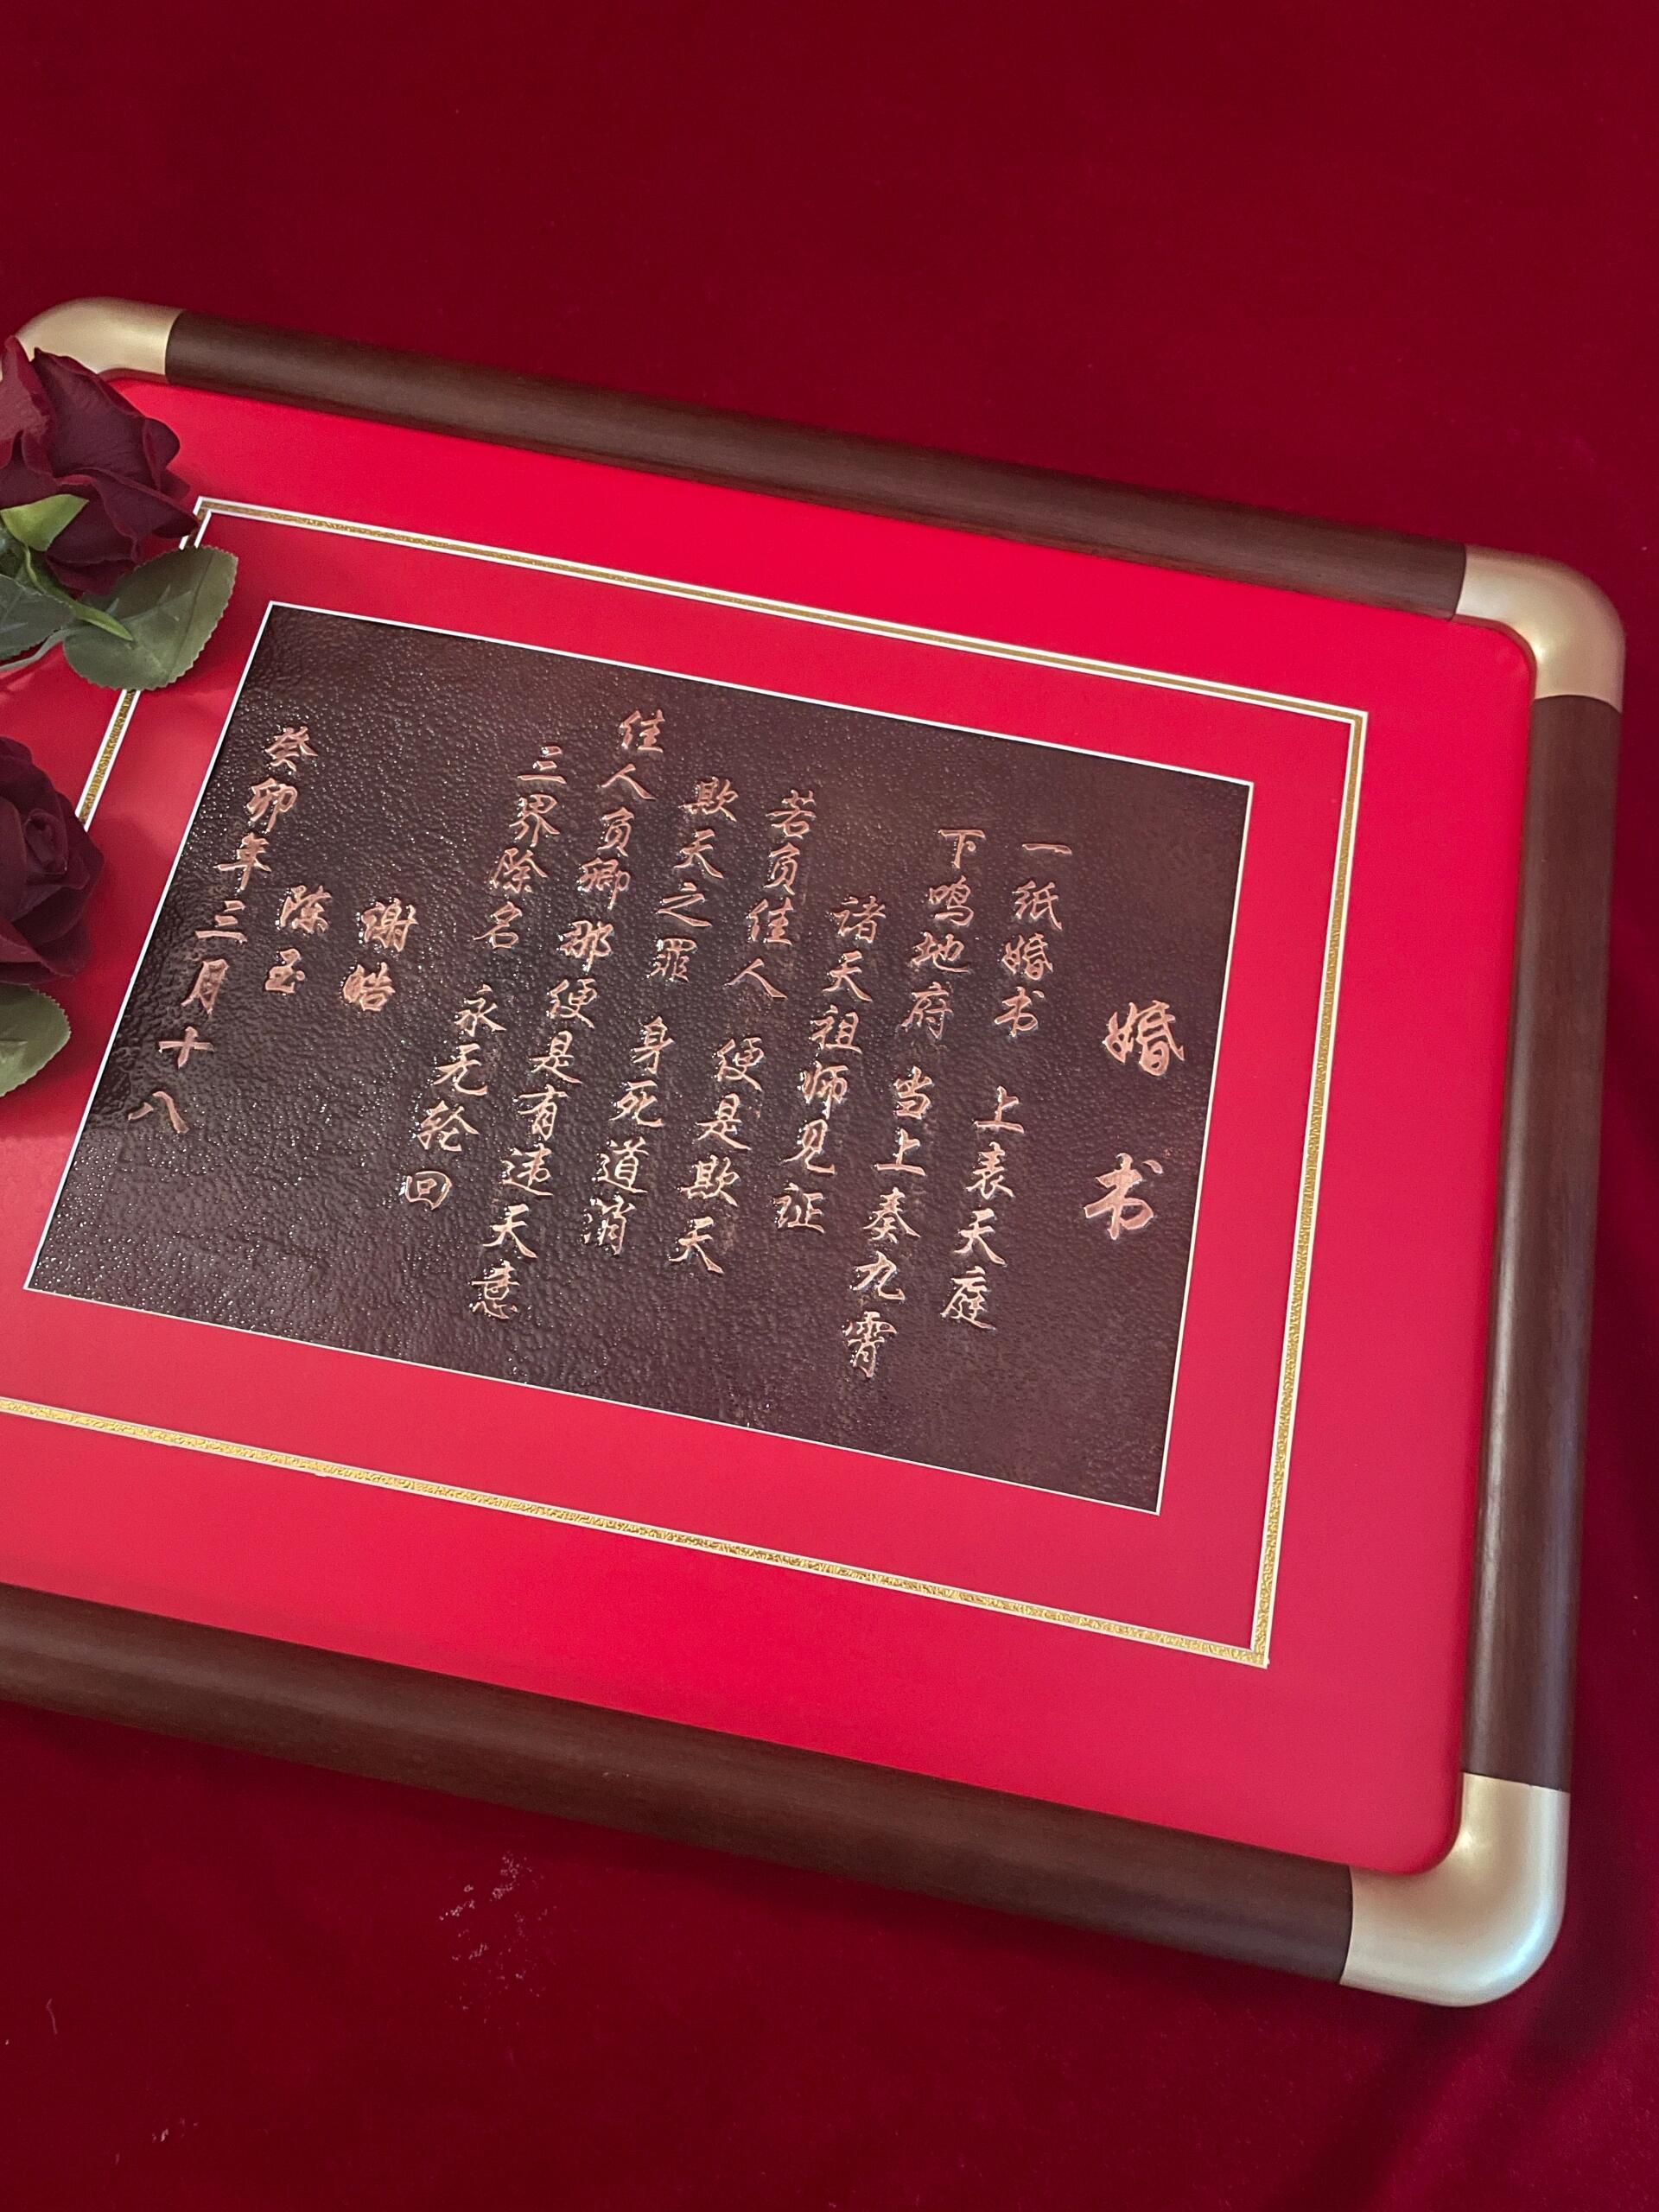 婚书
一纸婚书 上表天庭
下鸣地府 当上奏九霄
诸天祖师见证
若负佳人 便是欺天
欺天之罪 身死道消
佳人负卿 那便是有违天意
三界除名 永无轮回
谢皓
陈玉
癸卯年三月十八